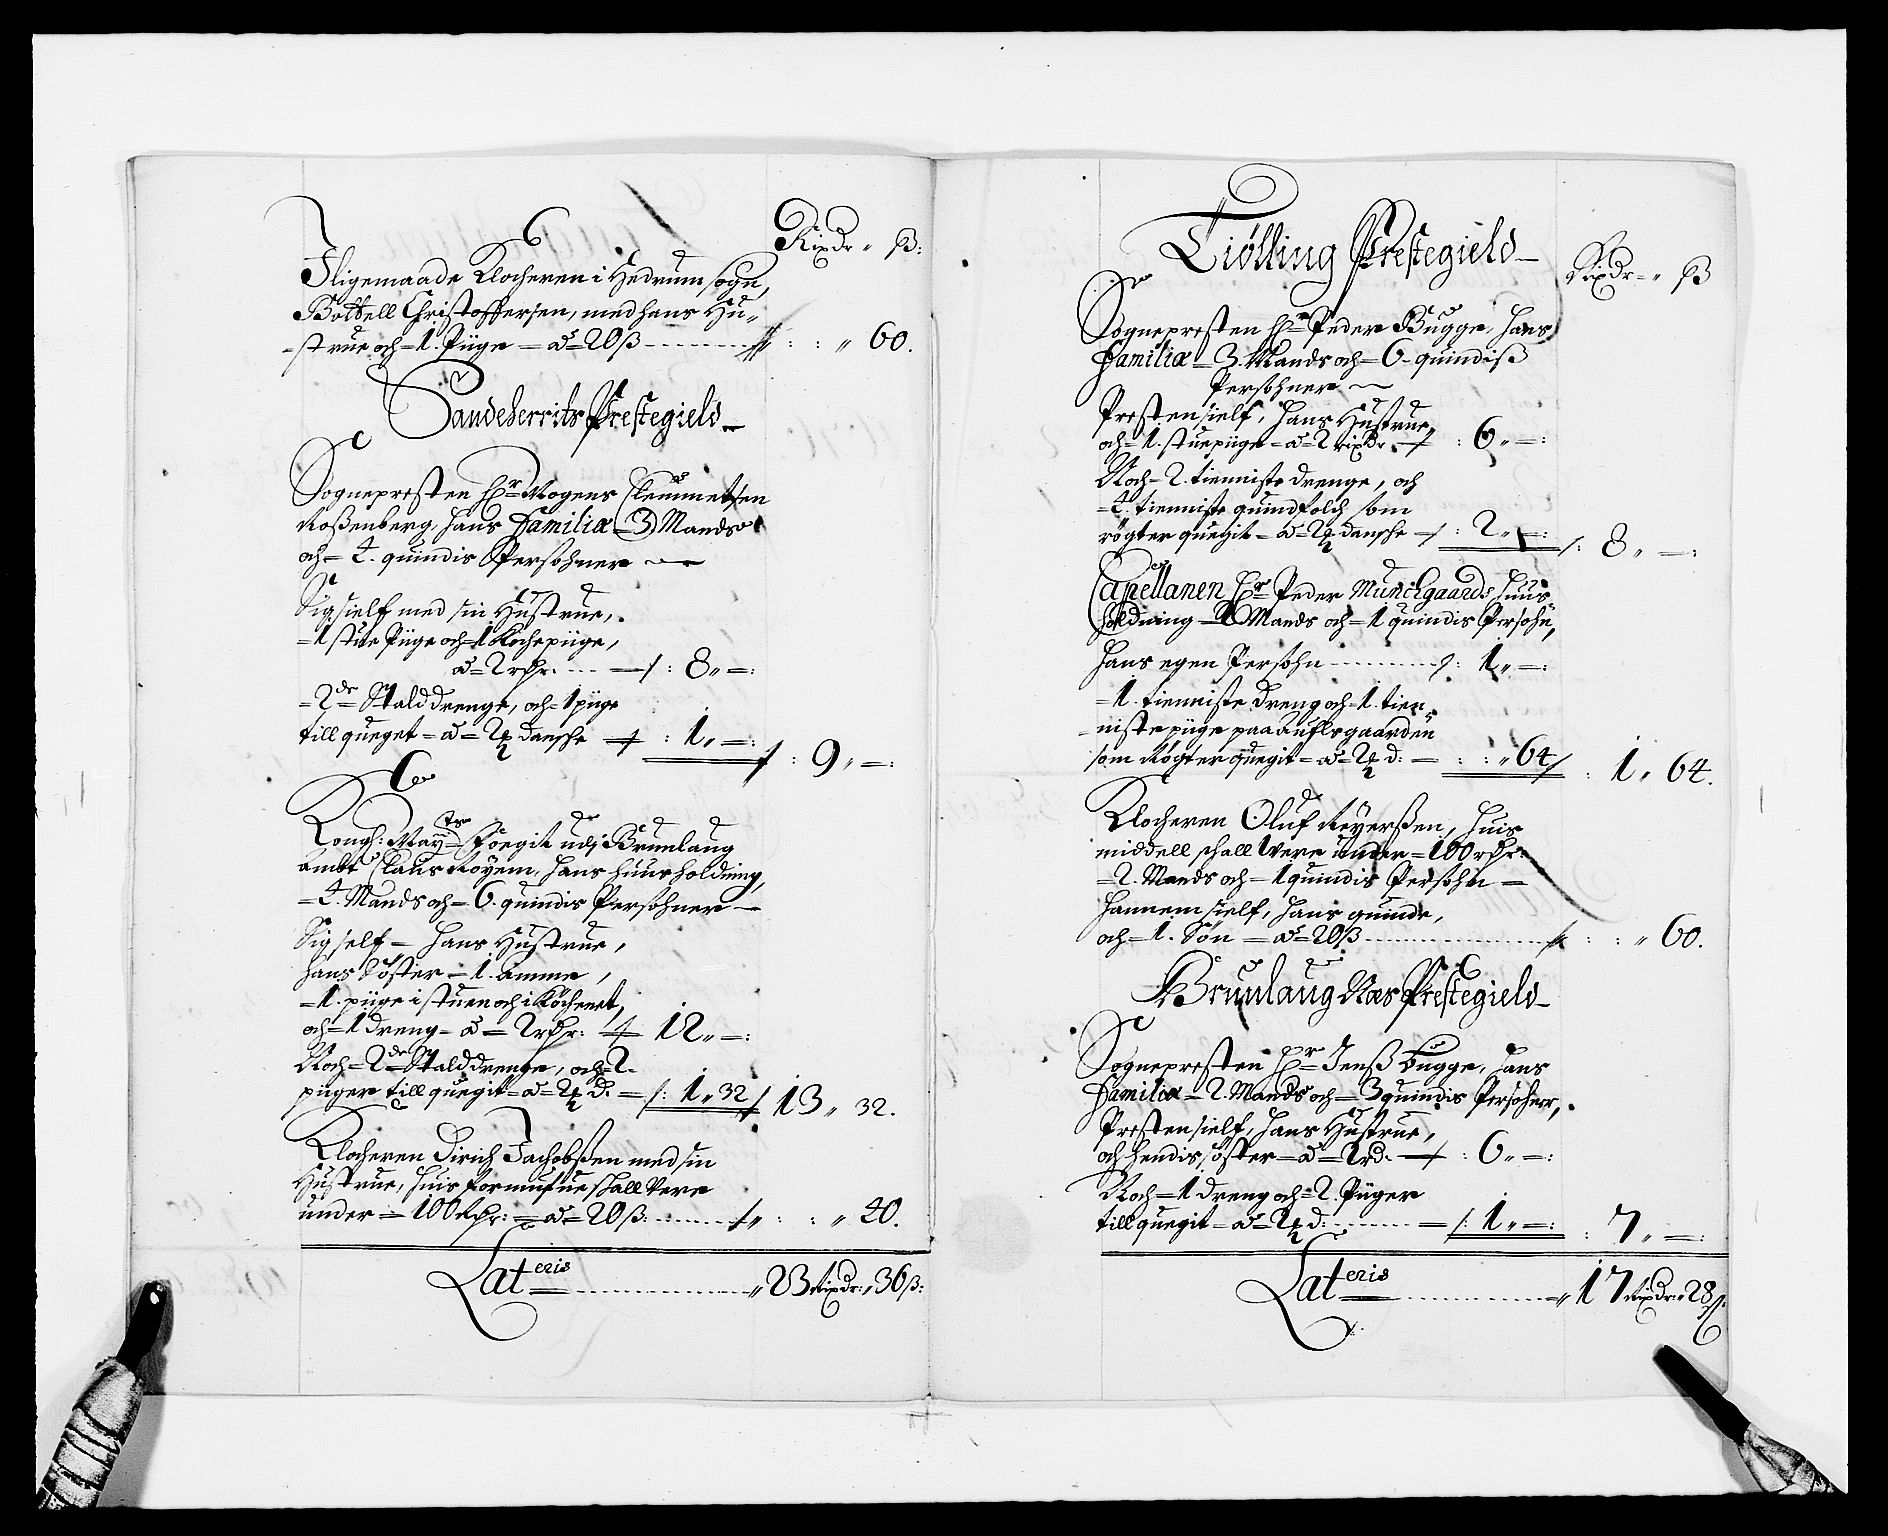 Rixdr „ ß:
Iligemaade Klocheren i Hedrum sogn,
Bottell Christoffersen, med hans Hu„
-strue och = 1. Piige = ad = 20 ß „ : : „ 60.
Sandeherrits Prestegield
Sognepresten Hr Mogens Clemmetsen
Roßenberg, hans Familiæ = 3 Mands
och = 4. quindis Persohner
Sig sielf med sin Hustrue,
= 1 stue Piige och = 1 Kochepiige,
ad = 2 rdr. : 8 „ = :
= 2de = Stald drenge, och = 1 piige
till queget = ad = 2½ dansche : 1 „ = : : 9 „ = :
Kongl: May:ts Foegit udj Brunlaug
ambt Claus Røyem, hans huusholding,
= 4. Mands och = 6. quindis Persohner
Sig self = hans Hustrue,
hans Søster = 1. amme,
= 1. piige i stuen och i Køchenet,
och = 1 dreng = ad = 2 rdr: 12 „ = :
Noch = 2de Stald drenge, och = 2.
piiger till quegit = ad = 2½ d. = /: 1 „ 32 / 13 „ 32.
Klocheren Dirich Jachobßen med sin
Hustrue, huis formufue schall Vere
under = 100 Rdr: = ad = 20 ß: „ : : „ 40.
Lateris „ 23 Rixdr: „ 36 ß:
Tiølling Prestegield
Rixdr = „ ß
Sognepresten Hr Peder Bugge, hans
Familiæ = 3. Mands och = 6. quindiß
Persohner
Presten sielf, hans Hustrue,
och = 1. stuepiige = ad = 2 rixdr. : 6 „ = :
Noch = 2. tienniste drenge, och
= 4. tienniste quindfolch som
røgter quegit = ad = 2½ dansche : 2 „ = : /: 8 „ = :
Capellanen Hr Peder Munchgaards huus
holdning = 2 Mands och = 1 quindis Persohn,
hans egen Persohn : 1 „ = :
= 1. tienniste dreng och = 1. tien„
niste piige paa Auflsgaarden
som Røgter quegit = ad = 2½ d: = : : „ 64 / : 1 „ 64.
Klocheren Oluf Reyerßen, huis
middell schall Vere under = 100 rdr:
= 2. Mands och = 1 quindis Persohn =
hannem sielf, hans quinde,
och = 1. Søn = ad = 20 ß : : „ 60.
Brunlaug Næs Prestegield
Sognepresten Hr Jenß Bugge, hans
Familiæ = 2. Mands och = 3 quindis Persohner,
Presten sielf, hans Hustrue,
och hendis søster = ad = 2 rd. : 6 „ = :
Noch = 1 dreng och = 2. Piiger
till quegit = ad = 2½ d: = /: 1 „ = : : 7 „ = :
Lateris „ 17 Rixdr: „ 28 ß: